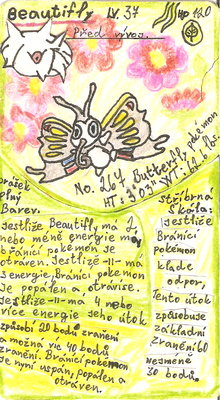 Beautifly LV. 37
HP 120
Před vývoj.
No. 267 Butterfly pokémon
HT: 3'03" WT: 62.6 lbs.
prášek
plný
barev.
Jestliže Beautifly má 2,
nebo méně energie
Bránící pokémon je
otráven. Jestliže -II- má
3 energie, Bránící pokémon
je popálen a otráven.
Jestliže -II- má 4 nebo
více energie jeho útok
způsobí 20 bodů zranění
a možná víc 40 bodů
zranění. Bránící pokémon
je nyní uspán, popálen a
otráven.
Stříbrná
Škála:
Jestliže
Bránící
pokémon
klade
odpor,
Tento útok
způsobuje
základní
zranění 60
nejméně
30 bodů.